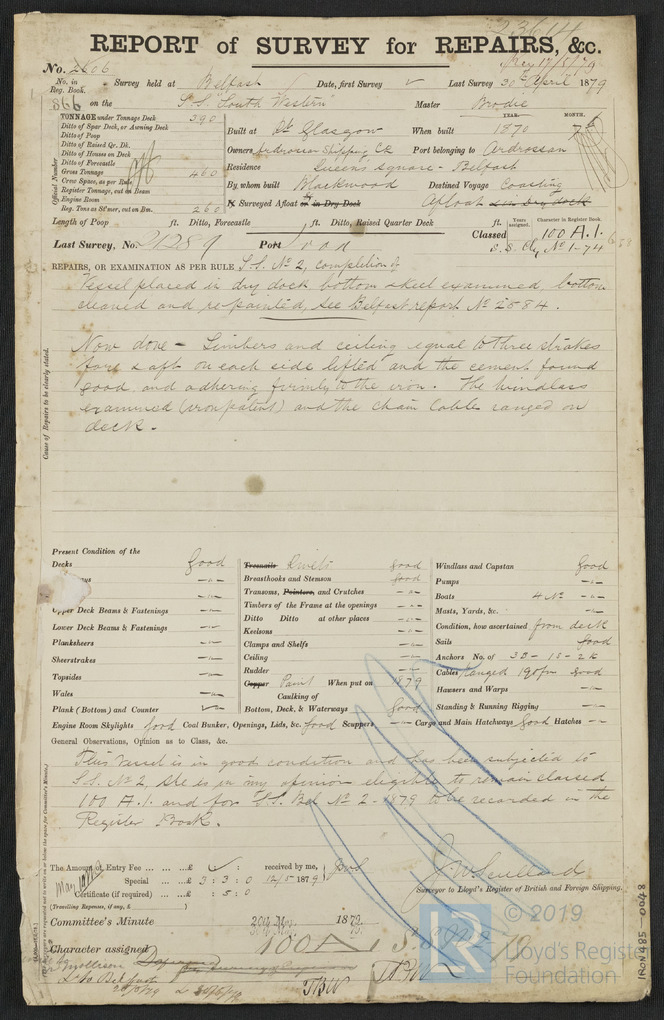 23614
REPORT of SURVEY for REPAIRS, &c.
No. 2606 May 17/5/79
No. in Reg. Book. Survey held at Belfast Date, first Survey Last Survey 30th April 1879
866 on the S.S. "South Western" Master Brodie
TONNAGE under Tonnage Deck 390 YEAR. MONTH.
Ditto of Spar Deck, or Awning Deck
Ditto of Poop Built at Pt. Glasgow When built 1870 7
Ditto of Raised Qr. Dk.
Ditto of Houses on Deck Owners Ardrossan Shipping Co Port belonging to Ardrossan
Ditto of Forecastle
Gross Tonnage 460 Residence Queen's Square - Belfast
Crew Space, as per Rule
Register Tonnage, cut on Beam By whom built Blackwood Destined Voyage Coasting
Engine Room
Reg. Tons as St'mer, cut on Bm. 260 If Surveyed Afloat or in Dry Dock Afloat
Official Number
Length of Poop ft. Ditto, Forecastle ft. Ditto, Raised Quarter Deck ft. Years assigned. Character in Register Book.
Last Survey, No. 21289 Port Classed 100 A.1.
S.S. No 1-74
REPAIRS, OR EXAMINATION AS PER RULE S.S. No 2, completion of
Vessel placed in dry dock bottom examined, bottom
cleaned and repainted, see Belfast report No 2584.
Now done - Limbers and ceiling equal to three strakes
fore & aft on each side lifted and the cement found
good and adhering firmly to the iron. The windlass
examined (iron patent) and the chain cable ranged on
deck.
Cause of Repairs to be clearly stated.
Present Condition of the
Decks Good Treenails Rivets good Windlass and Capstan Good
Breasthooks and Stemson Good Pumps -"-
Transoms, Pointers, and Crutches -"- Boats 4 No -"-
Upper Deck Beams & Fastenings -"- Timbers of the Frame at the openings -"- Masts, Yards, &c. -"-
Lower Deck Beams & Fastenings -"- Ditto Ditto at other places -"- Condition, how ascertained from deck
Planksheers -"- Keelsons -"- Sails Good
Sheerstrakes -"- Clamps and Shelfs -"- Anchors No. of 3B - 1S - 2K
Topsides -"- Ceiling -"- Cables Ranged 195fm Good
Wales -"- Rudder -"- Hawsers and Warps -"-
Plank (Bottom) and Counter Copper Paint When put on 1879 Standing & Running Rigging -"-
Caulking of
Bottom, Deck, & Waterways Good
Engine Room Skylights Good Coal Bunker, Openings, Lids, &c. Good Scuppers -"- Cargo and Main Hatchways Good Hatches -"-
General Observations, Opinion as to Class, &c.
This Vessel is in good condition and has been subjected to
S.S. No 2, she is in my opinion eligible to remain classed
100 A.1. and for S.S. Bel No 2-1879 to be recorded in the
Register Book.
The Amount of Entry Fee ... ... ...£ : : received by me,
Special ... ...£ 3 : 3 : 0 12/5 1879
Certificate (if required) ... ...£ : 5 : 0
(Travelling Expenses, if any, £ )
Surveyor to Lloyd's Register of British and Foreign Shipping.
Committee's Minute 20th May 1879
Character assigned 100 A
IRON485-0048
© 2019
LR
Lloyd's Register
Foundation